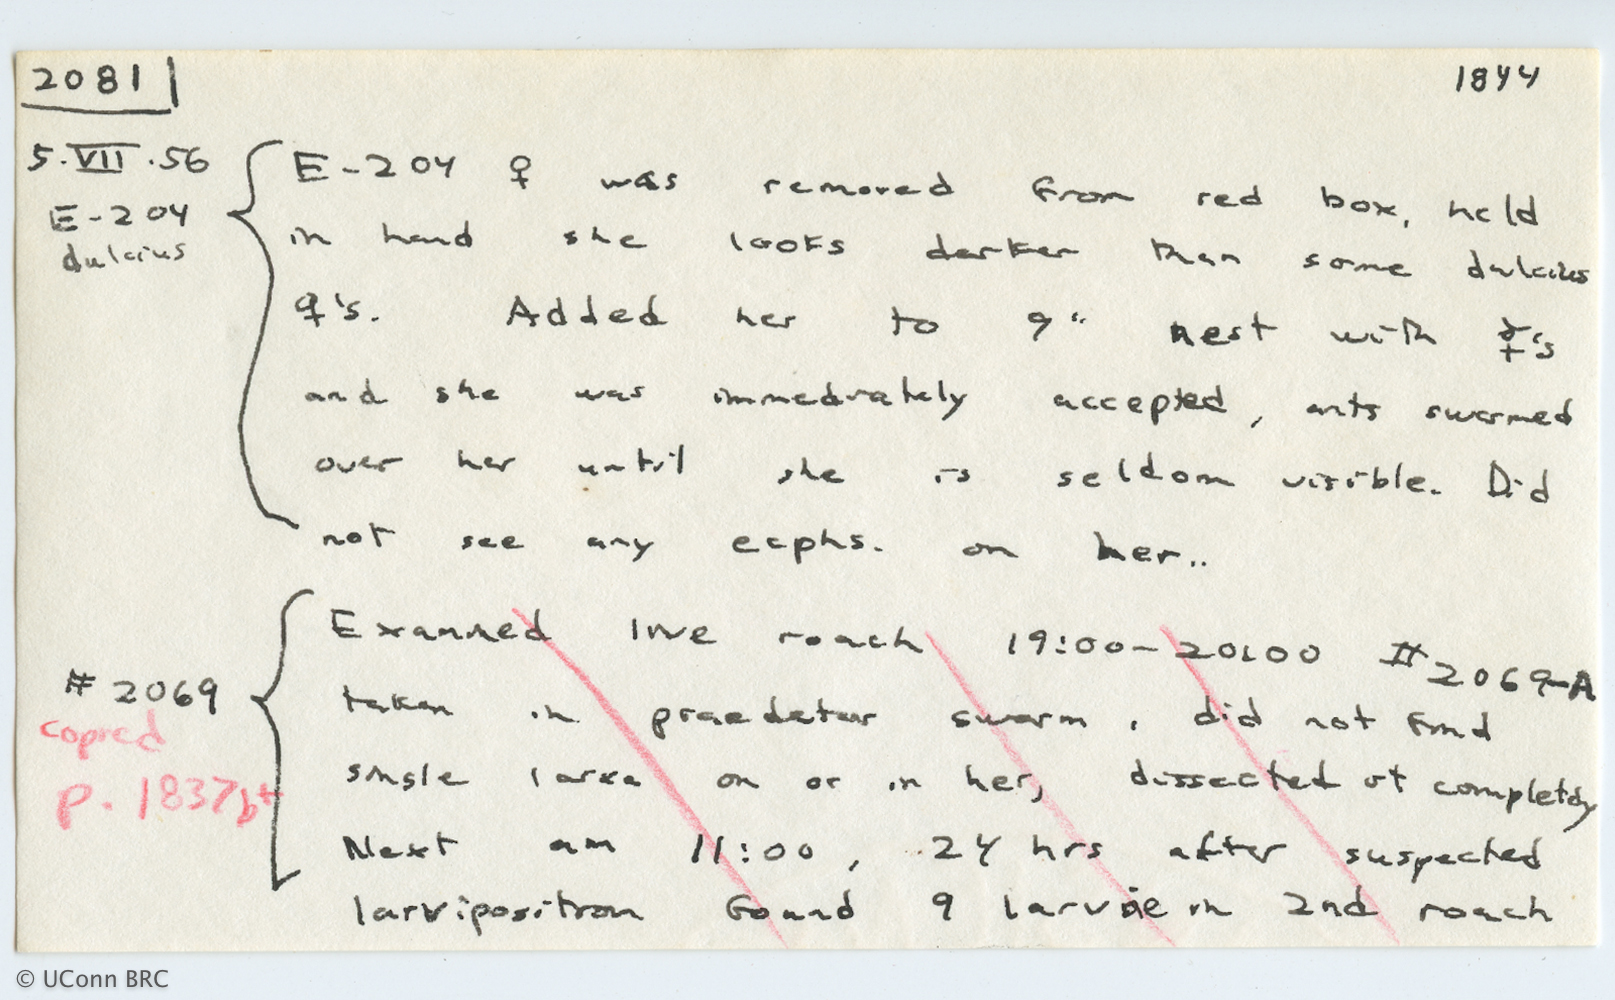 2081
1844
5.VII.56
E-204
dulcius
E-204 ♀ was removed from red box, held
in hand she looks darker than some dulcius
♀'s. Added her to 9" nest with ☿'s
and she was immediately accepted, ants swarmed
over her until she is seldom visible. Did
not see any ecphs. on her..
# 2069
copied
p. 1837b+
Examined live roach 19:00-20:00 # 2069-A
taken in praedator swarm, did not find
single larva on or in her, dissected it completely
Next am 11:00, 24 hrs after suspected
larviposition found 9 larvae in 2nd roach
© UConn BRC